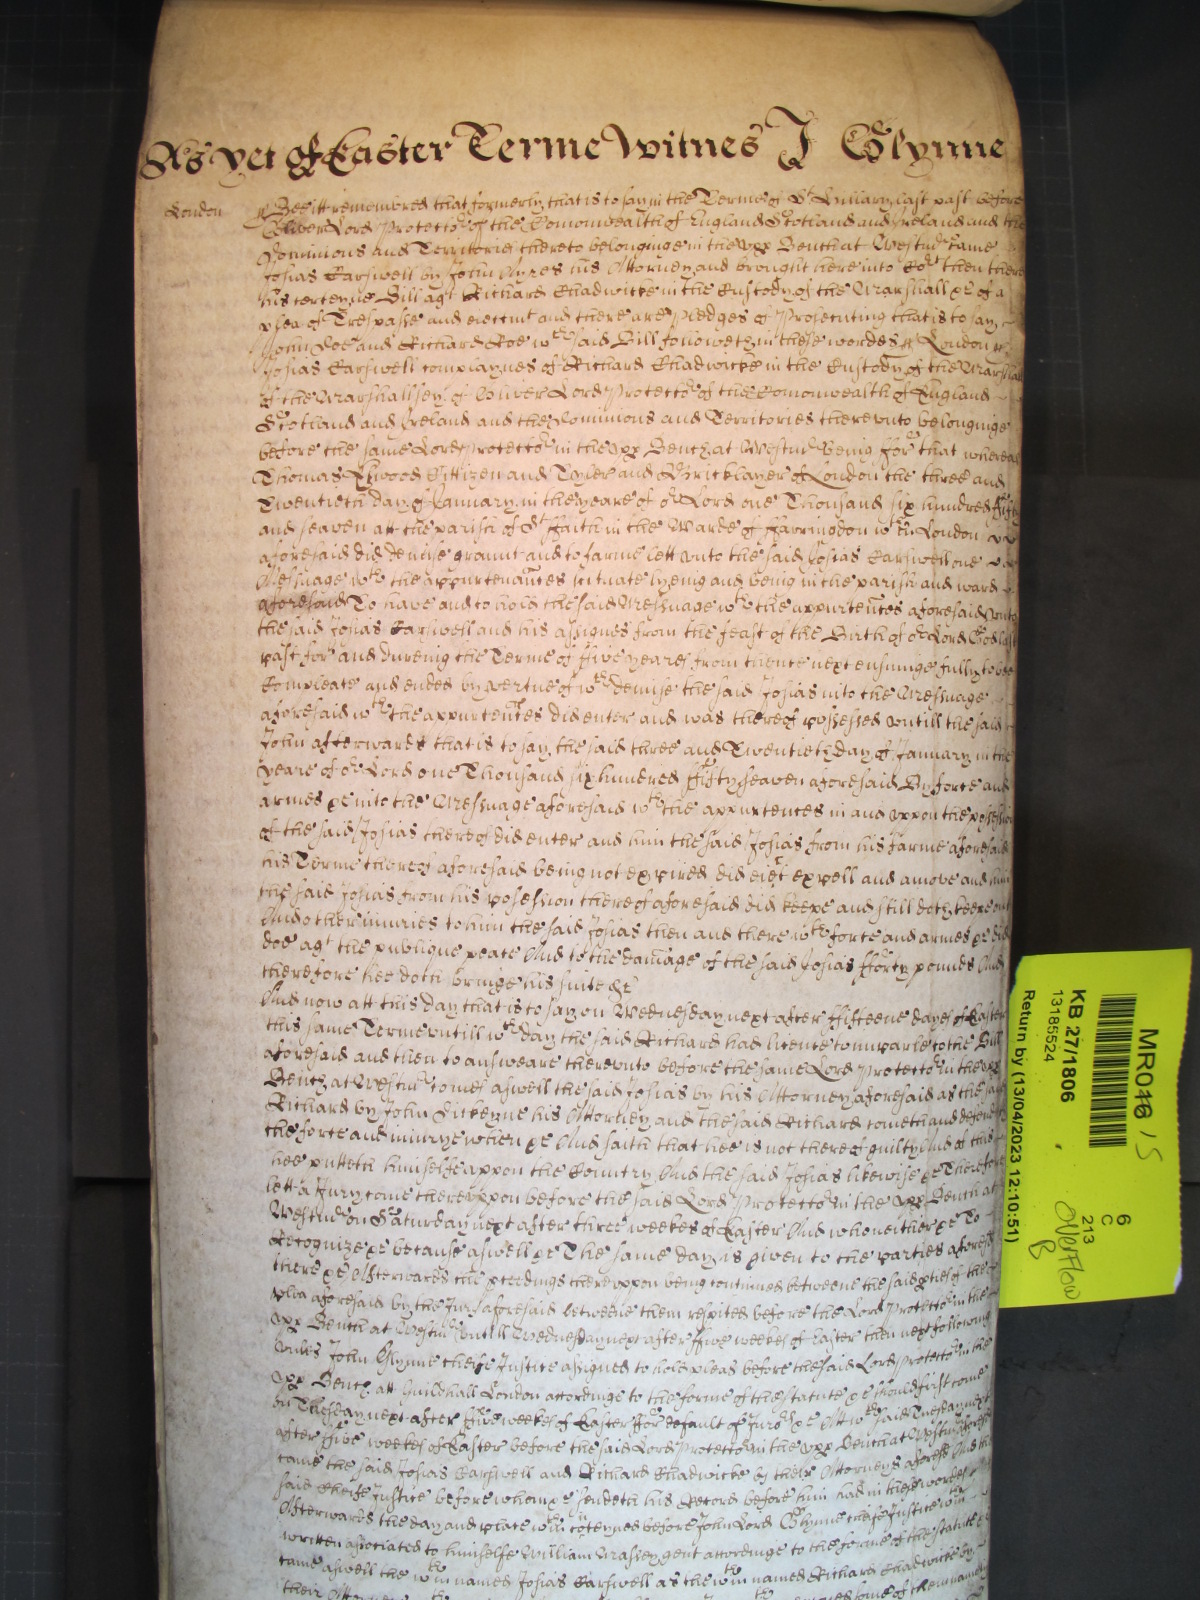 As yet of Easter Terme Witnes J Glynne
London
Bee itt remembred that formerly that is to say in the Terme of St Hillary last past before
Oliver Lord Protector of the Comonwealth of England Scotland and Ireland and the
Dominions and Territories thereto belonginge in the upp Bench at Westmr came
Josias Carswell by John Ayres his Attorney and brought here into Cort then there
his certeyne Bill agt Richard Chadwicke in the Custody of the Marshall &c of a
plea of Trespasse and eiectmt and there are pledges of Prosecuting that is to say
John Doe and Richard Roe wch said Bill followeth in these wordes ss London ss
Josias Carswell complaynes of Richard Chadwicke in the Custody of the Marshall
of the Marshallsey of Oliver Lord Protector of the Comonwealth of England
Scotland and Ireland and the Dominions and Territories thereunto belonginge
before the same Lord Protector in the upp Bench at Westmr Being for that whereas
Thomas Cittizen and Tyler and Bricklayer of London the three and
Twentieth day of January in the yeare of or Lord one Thousand six hundred fifty
and seaven att the parish of St ffaith in the Warde of ffarringdon wthin London
aforesaid did demise graunt and to farme lett unto the said Josias Carswell one
Messuage wth the appurtenances scituate lyeing and being in the parish and ward
aforesaid To have and to hold the said Messuage wth the appurtences aforesaid unto
the said Josias Carswell and his assignes from the feast of the Birth of or Lord God last
past for and dureing the Terme of ffive yeares from thence next ensuinge fully to bee
Compleate and ended by vertue of wch demise the said Josias into the Messuage
aforesaid wth the appurtences did enter and was thereof possessed untill the said
John afterwards that is to say the said three and Twentieth day of January in the
yeare of or Lord one Thousand six hundred ffifty seaven aforesaid By force and
armes &c into the Messuage aforesaid wth the appurtences in and uppon the possession
of the said Josias thereof did enter and him the said Josias from his farme aforesaid
his Terme thereof aforesaid being not expired did eiect expell and amove and him
the said Josias from his possession thereof aforesaid did keepe and still doth keepe out
And other iniuries to him the said Josias then and there wth force and armes &c did
doe agt the publique peace And to the damage of the said Josias fforty pounds And
therefore hee doth bringe his suite &c
And now att this day that is to say on Wednesday next after ffifteene dayes of Easter
this same Terme untill wch day the said Richard had licence to imparle to the Bill
aforesaid and then to answeare thereunto before the same Lord Protector in the upp
Bench at Westmr comes aswell the said Josias by his Attorney aforesaid as the said
Richard by John Dickeyne his Attorney and the said Richard cometh and defends
the force and iniurye when &c And saith that hee is not thereof guilty And of this
hee putteth himselfe uppon the Country And the said Josias likewise &c Therefore
lett a Jury come thereuppon before the said Lord Protector in the upp Bench at
Westmr on Saturday next after three weekes of Easter And who neither &c To
Recognize &c because aswell &c The same day is given to the parties aforesd
there &c Afterwards the pceedings thereuppon being continued betweene the said pties of the
plea aforesaid by the Jury aforesaid betweene them respited before the Lord Protector in the
upp Bench at Westmr untill Wednesday next after ffive weekes of Easter then next following
unles John Glynne cheife Justice assigned to hold pleas before the said Lord Protector in the
upp Bench att Guildhall London accordinge to the forme of the statute &c should first come
on Tuesday next after ffive weekes of Easter ffor default of Juror &c Att wch said Tuesday next
after ffive weekes of Easter before the said Lord Protector in the upp Bench at Westmr aforesd
came the said Josias Carswell and Richard Chadwicke by their Attorneys aforesd And the
said cheife Justice before whom &c sendeth his Record before him had in these wordes
Afterwards the day and place wthin conteyned before John Lord Glynne cheife Justice wthin
written associated to himselfe William Massey gent accordinge to the forme of the statute &c
came aswell the wthin named Josias Carswell as the wthin named Richard Chadwicke by
their
MR046 15
KB 27/1806
13185524
Return by (13/04/2023 12:10:51)
6
C
213
Overflow
B